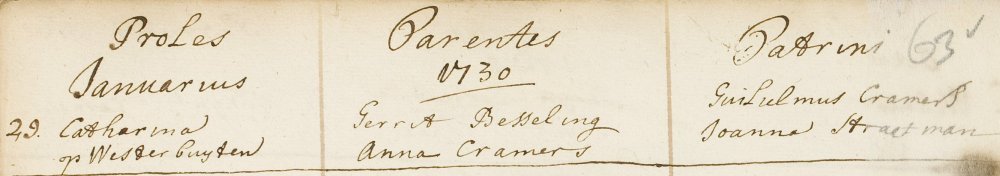 Proles Parentes Patrini 63
Januarius 1730
29. Catharina Gerrit Besseling Guilielmus Cramers
op Westerbuyten Anna Cramers Joanna Straetman